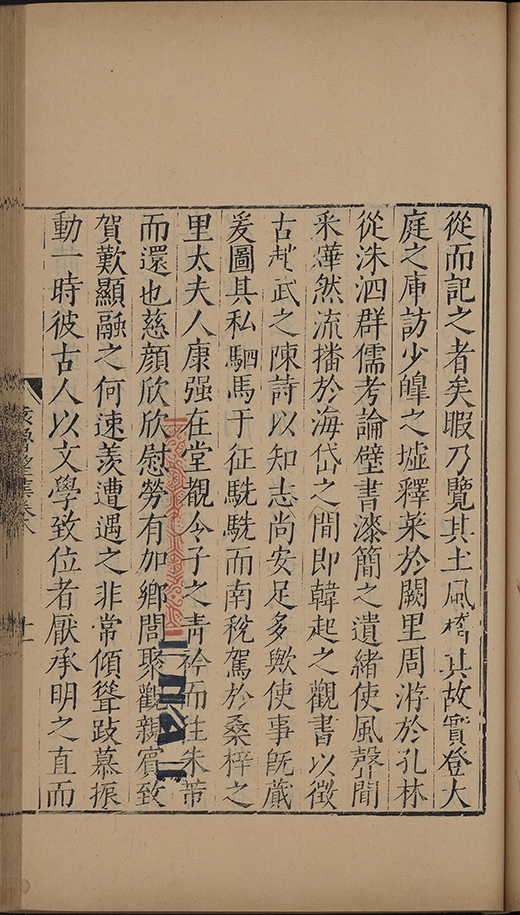 從而記之者矣暇乃覽其土風稽其故實登大
庭之庫訪少皥之墟釋菜於闕里周游於孔林
從洙泗群儒考論壁書漆簡之遺緒使風聲聞
釆燁然流播於海岱之間即韓起之觀書以徵
古趙武之陳詩以知志尚安足多歟使事旣蕆
爰圖其私駟馬于征駪駪而南稅駕於桑梓之
里太夫人康强在堂觀令子之靑衿而往朱芾
而還也慈顏欣欣慰勞有加鄉閭聚觀親賓致
賀歎顯融之何速羨遭遇之非常傾聳跂慕振
動一時彼古人以文學致位者厭承明之直而
集卷八
十一